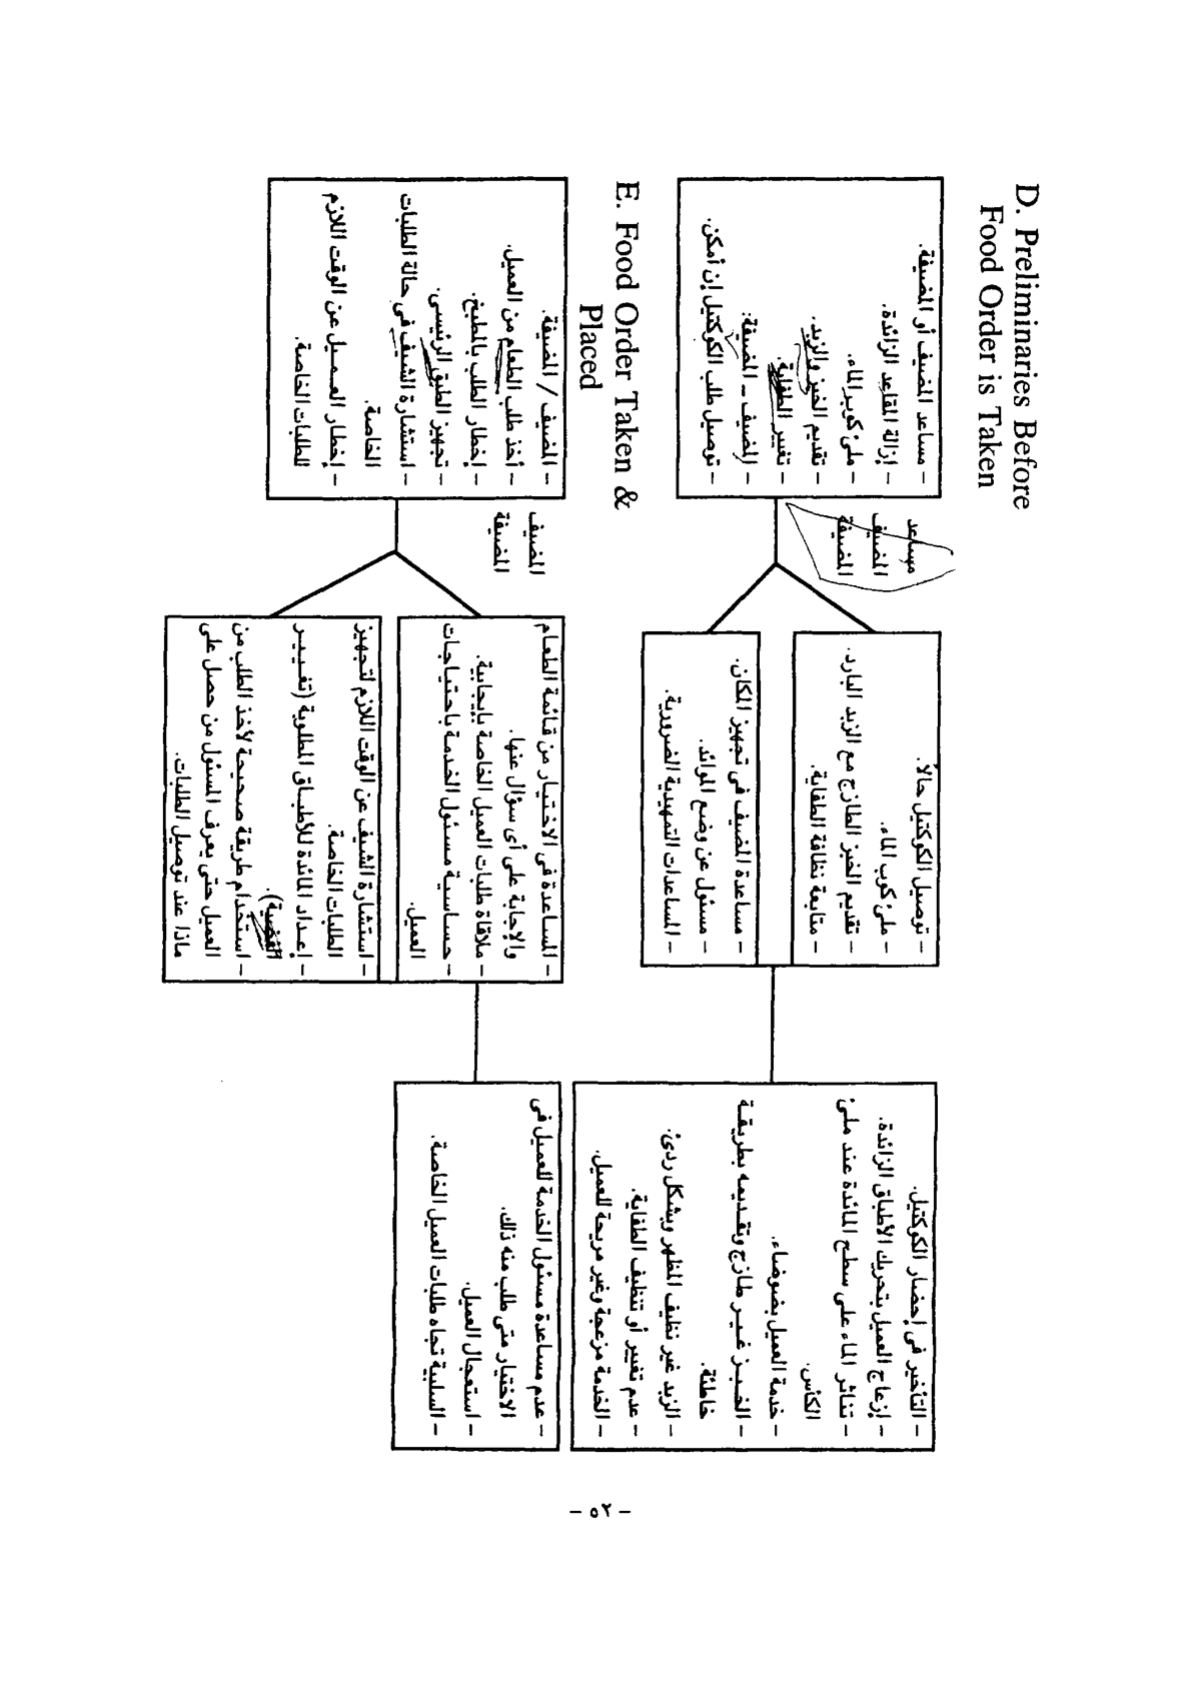 D. Preliminaries Before
Food Order is Taken
– مساعد المضيف أو المضيفة.
– إزالة المقاعد الزائدة.
– ملئ كوب الماء.
– تقديم الخبز والزبد.
– تغيير الطفاية.
– المضيف – المضيفة.
– توصيل طلب الكوكتيل إن أمكن.
مساعد
المضيف
المضيفة
– توصيل الكوكتيل حالاً.
– ملئ كوب الماء.
– تقديم الخبز الطازج مع الزبد البارد.
– متابعة نظافة الطفاية.
– مساعدة المضيف فى تجهيز المكان.
– مسئول عن وضع الموائد.
– المساعدات التمهيدية الضرورية.
– التأخير فى إحضار الكوكتيل.
– إزعاج العميل بتحريك الأطباق الزائدة.
– تناثر الماء على سطح المائدة عند ملئ
الكأس.
– خدمة العميل بضوضاء.
– الخبز غير طازج وتقديمه بطريقة
خاطئة.
– الزبد غير نظيف المظهر وبشكل ردئ.
– عدم تغيير أو تنظيف الطفاية.
– الخدمة مزعجة وغير مريحة للعميل.
E. Food Order Taken &
Placed
– المضيف / المضيفة.
– أخذ طلب الطعام من العميل.
– إخطار الطلب بالمطبخ.
– تجهيز الطبق الرئيسى.
– استشارة الشيف فى حالة الطلبات
الخاصة.
– إخطار العميل عن الوقت اللازم
للطلبات الخاصة.
المضيف
المضيفة
– المساعدة فى الاختيار من قائمة الطعام
والإجابة على أى سؤال عنها.
– ملاقاة طلبات العميل الخاصة بإيجابية.
– حساسية مسئول الخدمة باحتياجات
العميل.
– استشارة الشيف عن الوقت اللازم لتجهيز
الطلبات الخاصة.
– إعداد المائدة للأطباق المطلوبة (تغيير
الفضية).
– استخدام طريقة صحيحة لأخذ الطلب من
العميل حتى يعرف المسئول من حصل على
ماذا عند توصيل الطلبات.
– عدم مساعدة مسئول الخدمة للعميل فى
الاختيار متى طلب منه ذلك.
– استعجال العميل.
– السلبية تجاه طلبات العميل الخاصة.
– ٥٢ –